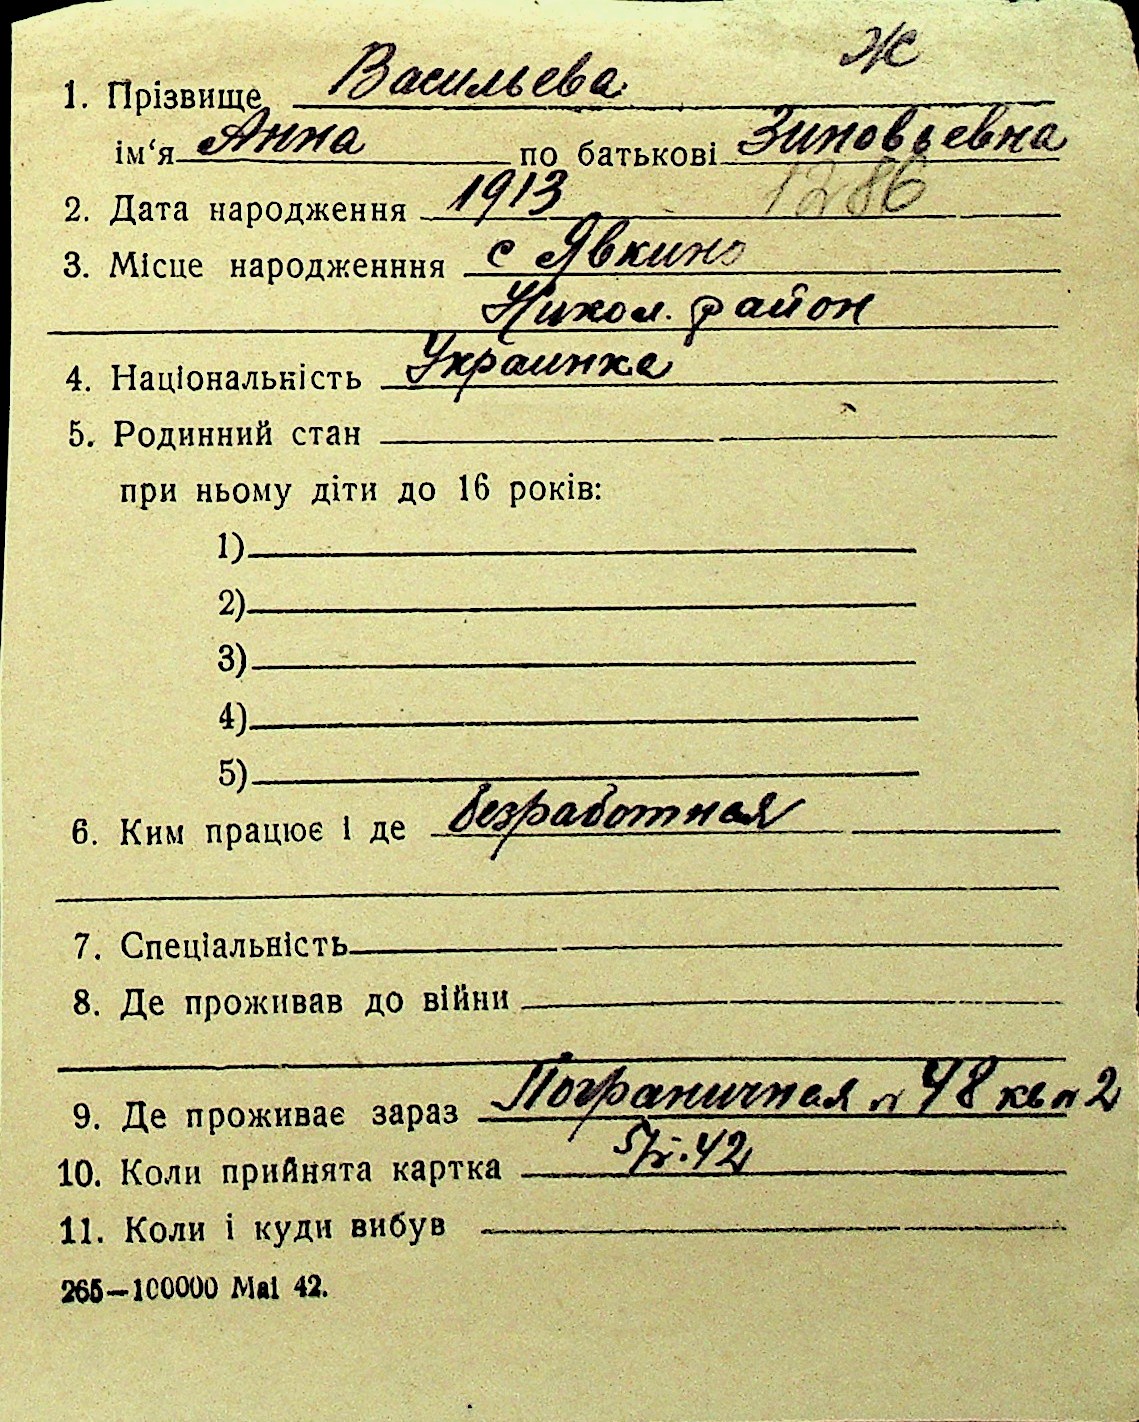 Ж
1. Прізвище Васильева
ім‘я Анна по батькові Зиновьевна
1286
2. Дата народження 1913
3. Місце народженння с Явкино
Никол. район
4. Національність Украинка
5. Родинний стан
при ньому діти до 16 років:
1)
2)
3)
4)
5)
6. Ким працює і де безработная
7. Спеціальність
8. Де проживав до війни
9. Де проживає зараз Пограничная 48 кв 2
10. Коли прийнята картка 42
11. Коли і куди вибув
265—100000 Mai 42.